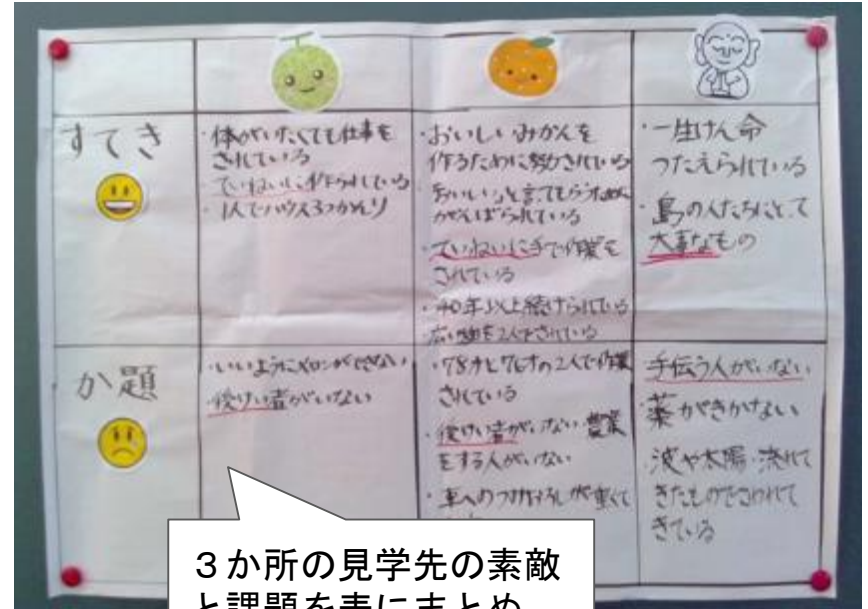 すてき
・体がいたくても仕事を
されている
・ていねいに作られている
・1人でハウス3つかんり
・おいしいみかんを
作るために努力されている
・おいしいと言ってもらうために
がんばられている
・ていねいに手で作業を
されている
・40年以上続けられている
広い畑を2人でされている
・一生けん命
つたえられている
・島の人たちにとって
大事なもの
か題
・いいようにメロンができない
・後けい者がいない
・78才と76才の2人で作業
されている
・後けい者がいない 農業
をする人がいない
・車への
が重くて
手伝う人がいない
・薬がきかない
・波や太陽・流れて
きたものでこわれて
きている
3か所の見学先の素敵
と課題を表にまとめ